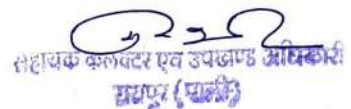 सहायक कलक्टर एवं उपखण्ड अधिकारी
रायपुर (पाली)